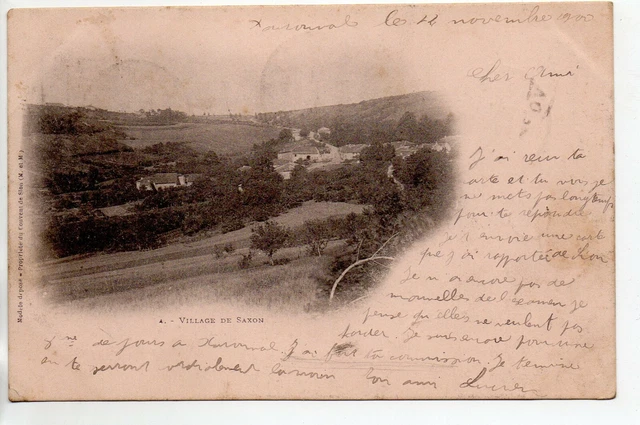 le 12 novembre 1900
Cher Ami
J'ai reçu ta
carte et tu vois je
ne mets pas longtemps
pour te répondre
Je t'envoie une carte
que j'ai rapportée de Sion
Je n'ai encore pas de
nouvelles de l'examen je
pense qu'elles ne veulent pas
tarder. Je suis encore pour une
de jours à J'ai fait ta commission. Je termine
en te serrant cordialement la main ton ami Lucien
4. - VILLAGE DE SAXON
Modèle déposé • Propriété du Couvent de Sion (M. et M.)